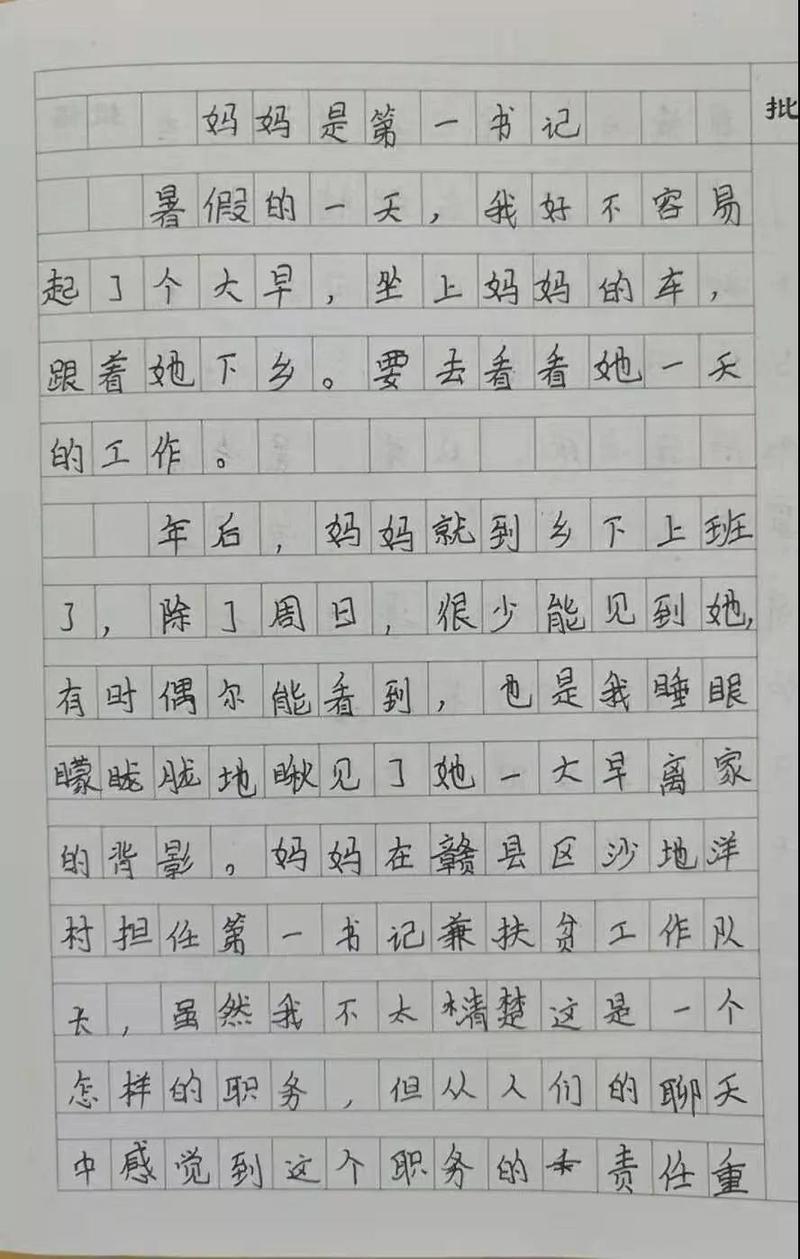 妈妈是第一书记
批
暑假的一天，我好不容易
起了个大早，坐上妈妈的车，
跟着她下乡。要去看看她一天
的工作。
年后，妈妈就到乡下上班
了，除了周日，很少能见到她，
有时偶尔能看到，也是我睡眼
朦眬胧地瞅见了她一大早离家
的背影。妈妈在赣县区沙地洋
村担任第一书记兼扶贫工作队
长，虽然我不太清楚这是一个
怎样的职务，但从人们的聊天
中感觉到这个职务的责任重